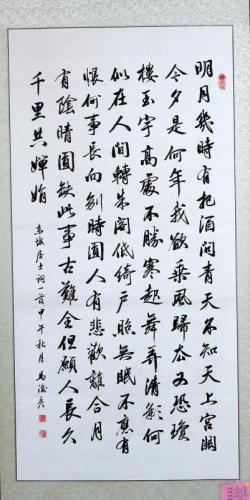 明月幾時有把酒問青天不知天上宮闕
今夕是何年我欲乘風歸去又恐瓊
樓玉宇高處不勝寒起舞弄清影何
似在人間轉朱閣低綺戶照無眠不應有
恨何事長向別時圓人有悲歡離合月
有陰晴圓缺此事古難全但願人長久
千里共嬋娟
東坡居士詞一首甲午秋月馬